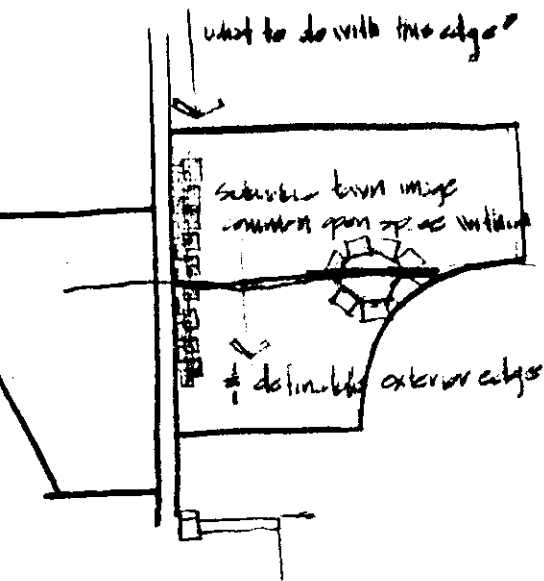 what to do with this edge?
town image
common open space within
& definable exterior edges